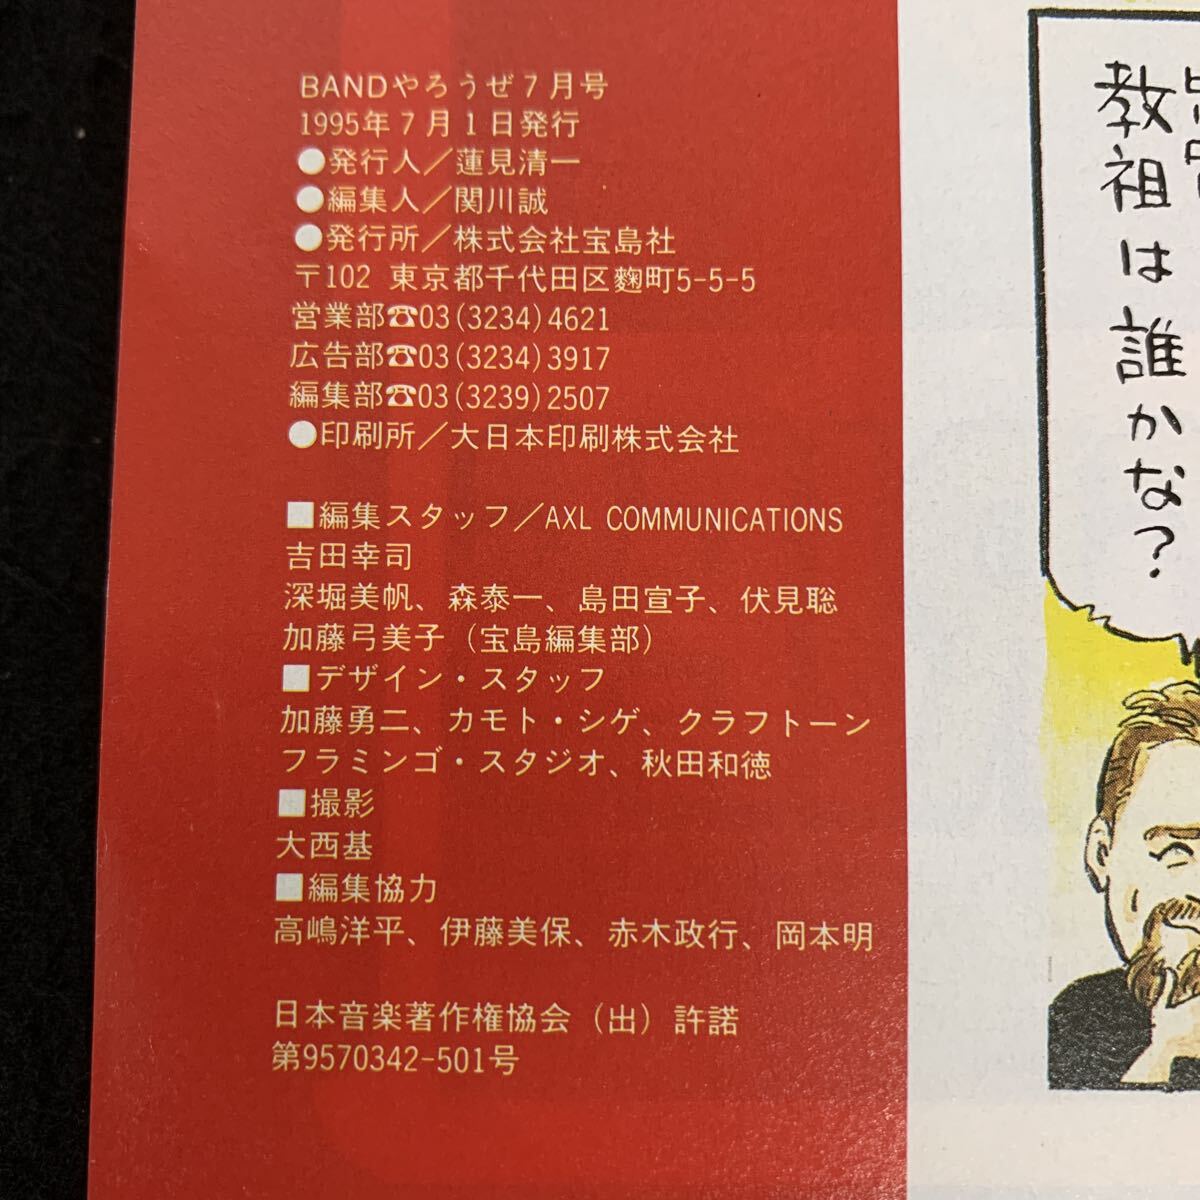 BANDやろうぜ7月号
1995年7月1日発行
●発行人／蓮見清一
●編集人／関川誠
●発行所／株式会社宝島社
〒102 東京都千代田区麴町5-5-5
営業部☎03(3234)4621
広告部☎03(3234)3917
編集部☎03(3239)2507
●印刷所／大日本印刷株式会社
■編集スタッフ／AXL COMMUNICATIONS
吉田幸司
深堀美帆、森泰一、島田宣子、伏見聡
加藤弓美子（宝島編集部）
■デザイン・スタッフ
加藤勇二、カモト・シゲ、クラフトーン
フラミンゴ・スタジオ、秋田和徳
■撮影
大西基
■編集協力
高嶋洋平、伊藤美保、赤木政行、岡本明
日本音楽著作権協会（出）許諾
第9570342-501号
教祖は誰かな?